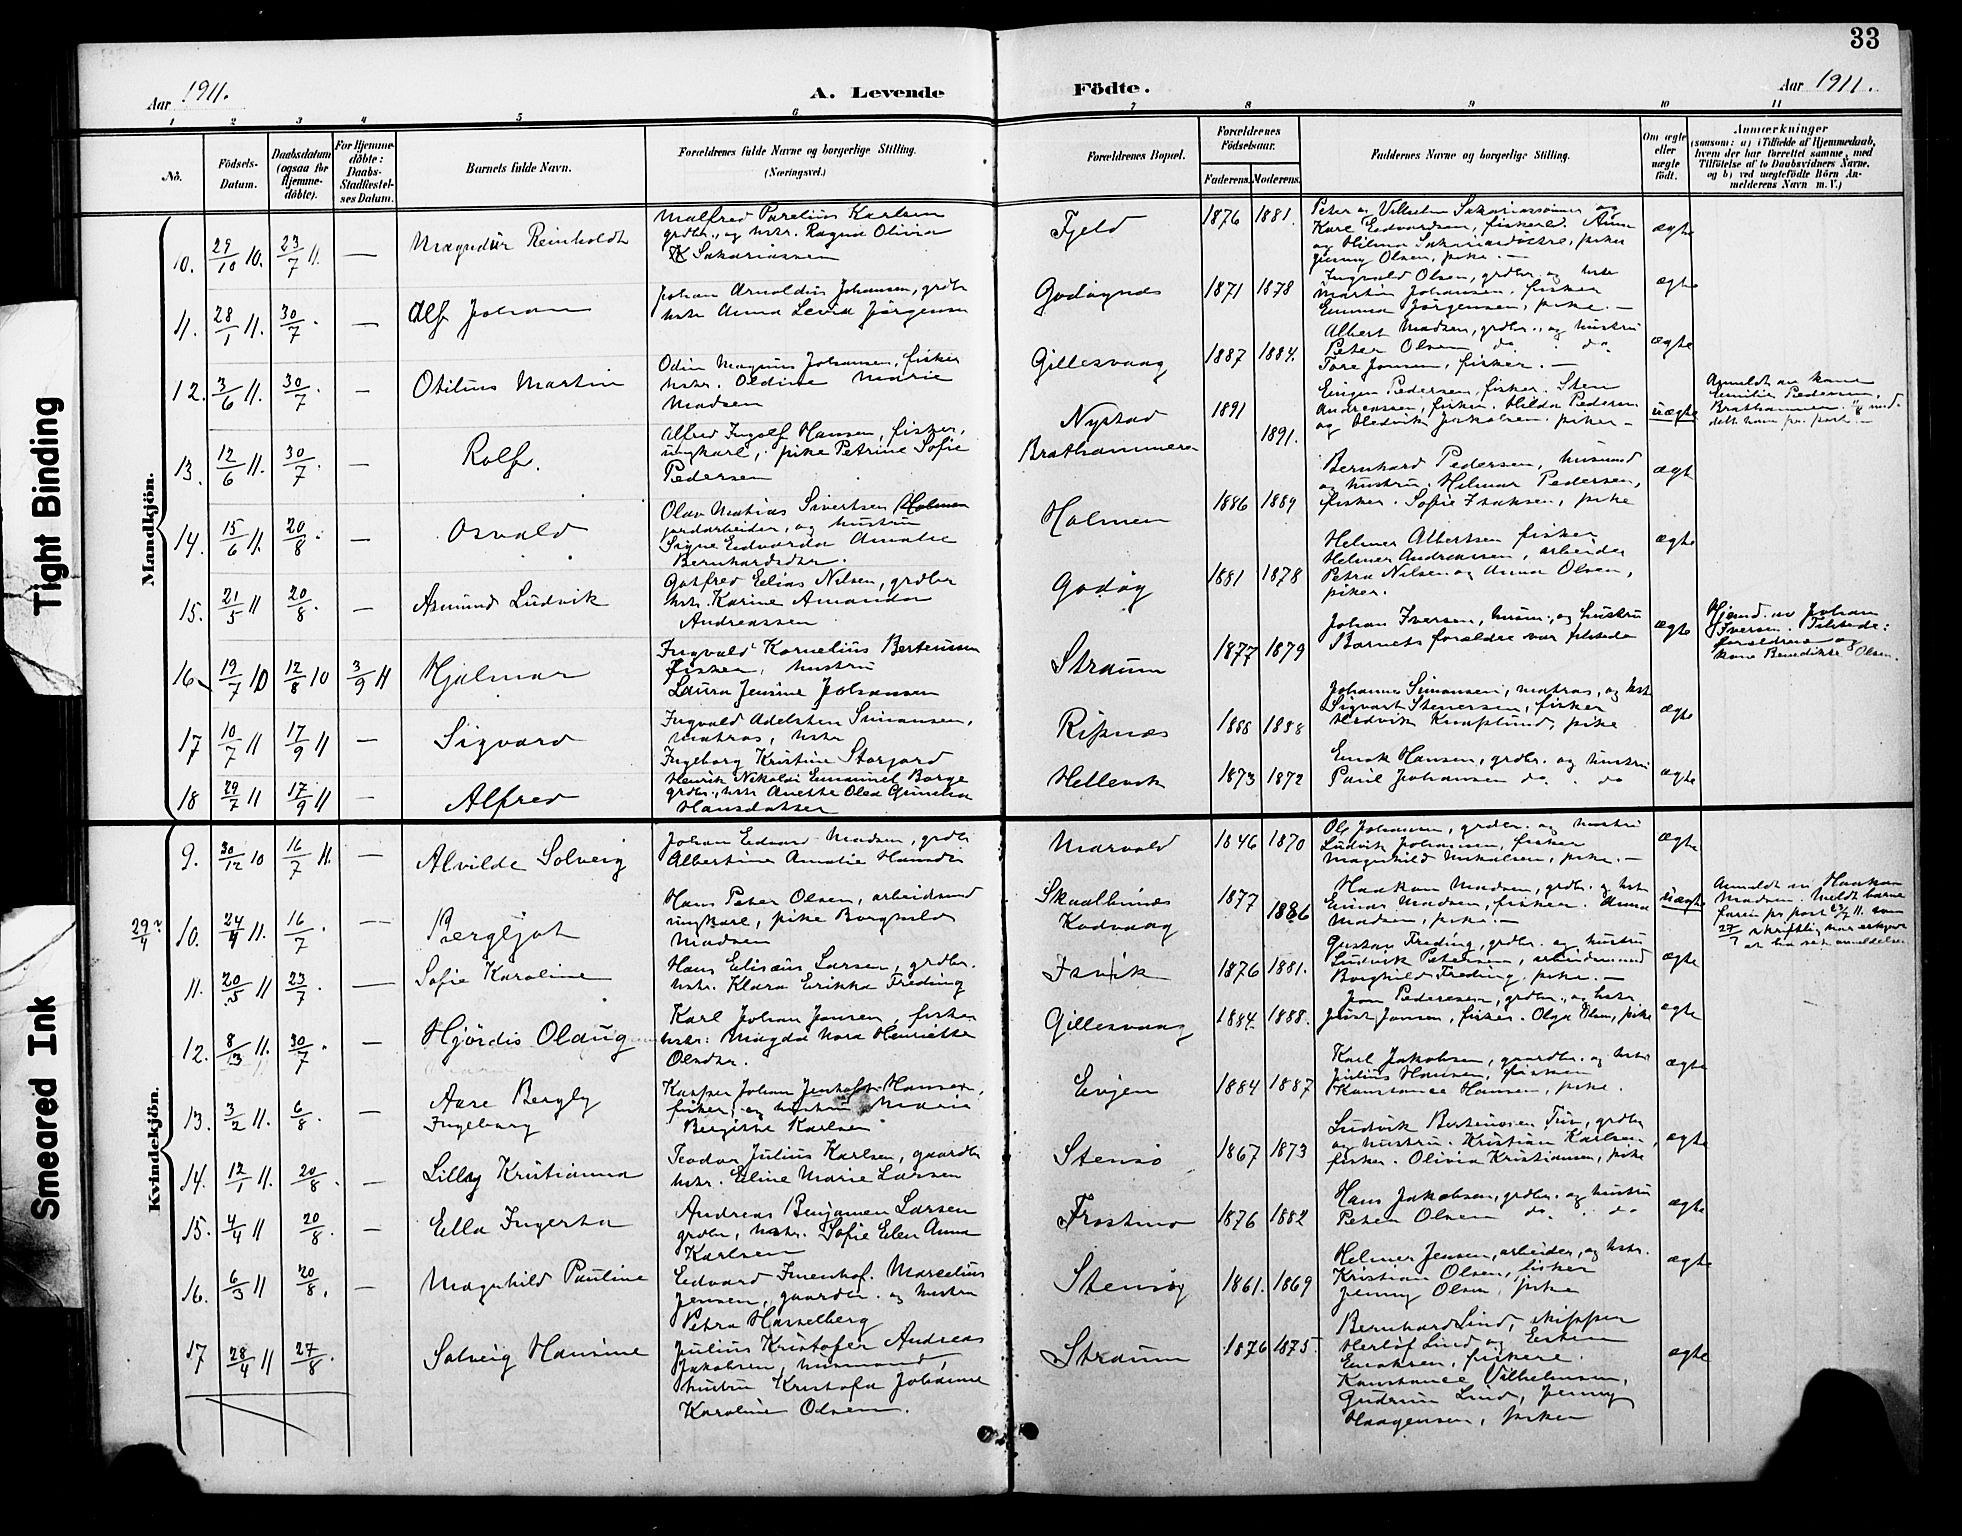 33
Aar 1911.
A. Levende
Födte.
Aar 1911.
1 2 3 4 5 6 7 8 9 10 11
No.
Födsels-
Datum.
Daabsdatum
(ogsaa for
Hjemme-
döbte).
For Hjemme-
döbte:
Daabs-
Stadfæstel-
ses Datum.
Barnets fulde Navn.
Forældrenes fulde Navne og borgerlige Stilling.
(Næringsvei.)
Forældrenes Bopæl.
Forældrenes
Födselsaar.
Faderens. Moderens.
Faddernes Navne og borgerlige Stilling.
Om ægte
eller
uægte
födt.
Anmærkninger
(saasom: a) i Tilfælde af Hjemmedaab,
hvem der har forrettet samme, med
Tilföielse af to Daabsvidners Navne,
og b) ved uægtefödte Börn An-
melderens Navn m. V.)
Tight Binding
Smeared Ink
Mandkjön.
10. 29/10 10. 23/7 11. — Reinholdt
Malfred Parelius Karlsen
grdbr., og hstr. Ragna Olivia
Sakariassen
Fjeld 1876 1881.
Karl Edvardsen, fiskere.
Jenny Olsen, pike. —
ægte
11. 28/1 11. 30/7. — Alf Johan
Johan Arnoldus Johansen, grdbr
hstr Anna Jörgensen
Godøynes 1871 1878
Ingvald Olsen, grdbr. og hstr
Martin Johansen, fisker
Emma Jörgensen, pike. —
ægte
12. 3/6 11. 30/7. — Otilius Martin
Odin Magnus Johansen, fisker
hstr. Oldine Marie
Madsen
Gillesvaag 1887 1884.
Albert Madsen, grdbr., og hustru
Peter Olsen do. do.
Tore Jensen, fisker. —
ægte
13. 12/6 11. 30/7. — Rolf.
Alfred Ingolf Hansen, fisker,
ungkarl, pike Petrine Sofie
Pedersen
Nystad
Brathammeren
1891 1891.
Pedersen, fisker. Sten
Andreassen, fisker. Hilda Pedersen
og Hedvik Jakobsen. piker —
uægte
Anmeldt av kone
Emilie Pedersen,
14. 15/6 11. 20/8. — Osvald
Olav Matias Sivertsen Holmen
jordarbeider, og hustru
Signe Edvarda Amalie
Bernhardsdtr.
Holmen 1886 1889
Bernhard Pedersen, husmand
og hustru. Hilmar Pedersen,
fisker. Sofie Isaksen, pike
ægte
15. 21/5 11 20/8. — Asmund Ludvik
Gotfred Elias Nilsen, grdbr
hstr. Karine Amanda
Andreassen
Godøy 1881 1878
Helmer Albertsen fisker
Helmer Andreassen, arbeider
Petra Nilsen og Anna Olsen,
piker.
ægte
16 19/7 10 12/8 10 3/9 11 Hjalmar
Ingvald Kornelius Berteussen
fisker, hustru
Laura Jensine Johansen
Straum 1877 1879
Johan Iversen, husm. og hustru
Barnets forældre var tilstede
ægte
Hjemd. av Johan
Iversen. Tilstede:
forældrene og
kone Benedikte Olsen.
17 10/7 11 17/9 11 — Sigvard
Ingvald Adelsten Simonsen,
matros, hstr
Ingeborg Kristine Storjord
Ripnæs 1888 1888
Johannes Simonsen, matros, og hstr
Sigvart Stenersen, fisker
Hedvik Knaplund, pike
ægte
18 29/7 11 17/9 11 — Alfred
Henrik Nikolai Emanuel Borge
grdbr., hstr Anette Olea Gunelia
Hansdatter
Hellevik 1873 1872
Enok Hansen, grdbr. og hustru
Paul Johansen do. do
ægte
Kvindekjön.
9. 30/12 10 16/7 11. — Alvilde Solveig
Johan Edvard Madsen, grdbr
Albertine Amalie Hansdtr
Marvold 1846 1870
Ole Johansen, grdbr. og hustru
Ludvik Johansen, fisker
Magnhild Mikalsen, pike. —
ægte
29/4? 10. 24/4 11. 16/7. — Bergljot
Hans Peter Olsen, arbeidsmd
ungkarl, pike Borghild
Madsen
Kodvaag 1877 1886
Haakon Madsen, grdbr. og hstr
Einar Madsen, fisker. Anna
Madsen, pike. —
uægte
Anmeldt av Haakon
Madsen. Meldt barne
faren pr. post
11. 20/5 11 23/7. — Sofie Karoline
Hans Elisæus Larsen, grdbr.
hstr. Klara Erikka Freding
Isvik 1876 1881.
Gustav Freding, grdbr. og hustru
Ludvik Petersen, arbeidsmand
Borghild Freding, pike. —
ægte
12. 8/3 11. 30/7. Hjördis Oldaug
Karl Johan Jensen, fisker
hstr: Magda Nora Henriette
Olsdtr.
Gillesvaag 1884 1888.
Jon Pedersen, grdbr., og hstr.
Just Jensen, fisker. Olga Olsen, pike
ægte
13. 3/2 11. 6/8. — Aase Bergly
Ingeborg
Kasper Johan Hansen,
fisker, og hustru Marie
Bergitte Karlsen
Evjen 1884 1887
Karl Jakobsen, gaardbr. og hstr
Julius Hansen, fisker
Konstance Hansen, pike.
ægte
14. 12/1 11. 20/8. — Lilly Kristianna
Teodor Julius Karlsen, gaardbr
hstr. Eline Marie Larsen
Stensø 1867 1873
Ludvik Berteussen grdbr
og hustru. Kristian Karlsen,
fisker. Olivia Kristiansen, pike
ægte
15. 4/4 11 20/8. — Ella Ingerta
Andreas Benjamen Larsen
grdbr, hstr. Sofie Elen Anna
Karlsen
Frostmo 1876 1882
Hans Jakobsen, grdbr. og hustru
Peter Olsen do. do
ægte
16. 6/3 11 20/8. — Magnhild Pauline
Edvard Imenhof. Marselius
Jensen, gaardbr. og hustru
Petra Hasselberg
Stensøy 1861. 1869
Helmer Jensen, arbeider, og hstr.
Kristian Olsen, fisker
Jenny Olsen, pike
ægte
17 28/4 11 27/8. Solveig Hansine
Julius Kristofer Andreas
Jakobsen, husmand,
hustru Kristofa Johanne
Karoline Olsen.
Straum 1876 1875.
Bernhard Lind, skipper
Herlöf Lind og
Enoksen, fiskere.
Konstance Vilhelmsen,
Gudrun Lind, Jenny
Haagensen, piker
ægte